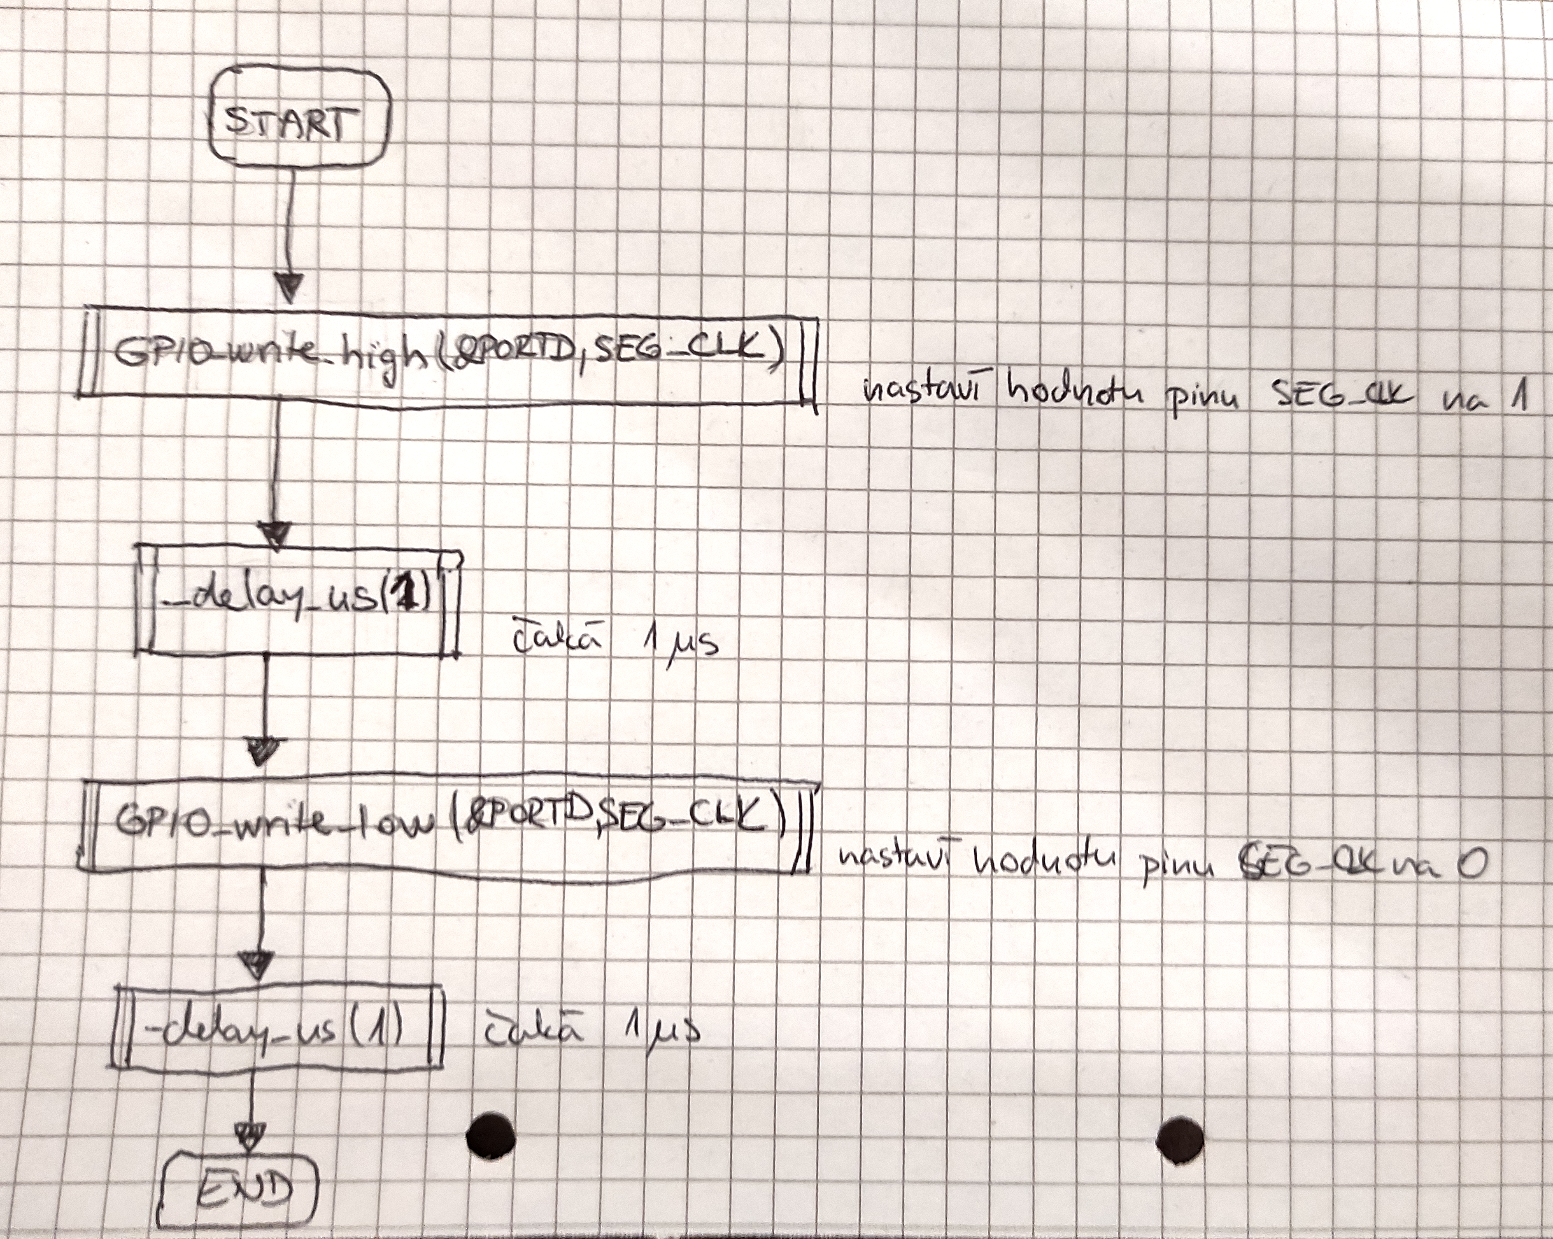 START
GPIO_write_high(&PORTD, SEG_CLK)
nastaví hodnotu pinu SEG_CLK na 1
_delay_us(1)
čaká 1 μs
GPIO_write_low(&PORTD,SEG_CLK)
nastaví hodnotu pinu SEG_CLK na 0
_delay_us(1)
čaká 1 μs
END